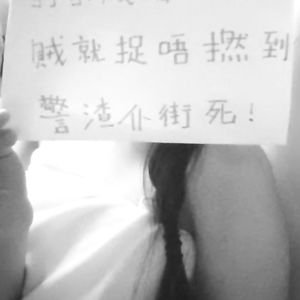 賊就捉唔撚到
警渣仆街死!